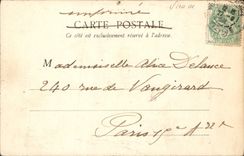 imprimé
CARTE POSTALE
Ce côté est exclusivement réservé à l'adresse.
Mademoiselle Alice Delance
240 rue de Vaugirard
Paris 15e Arrt